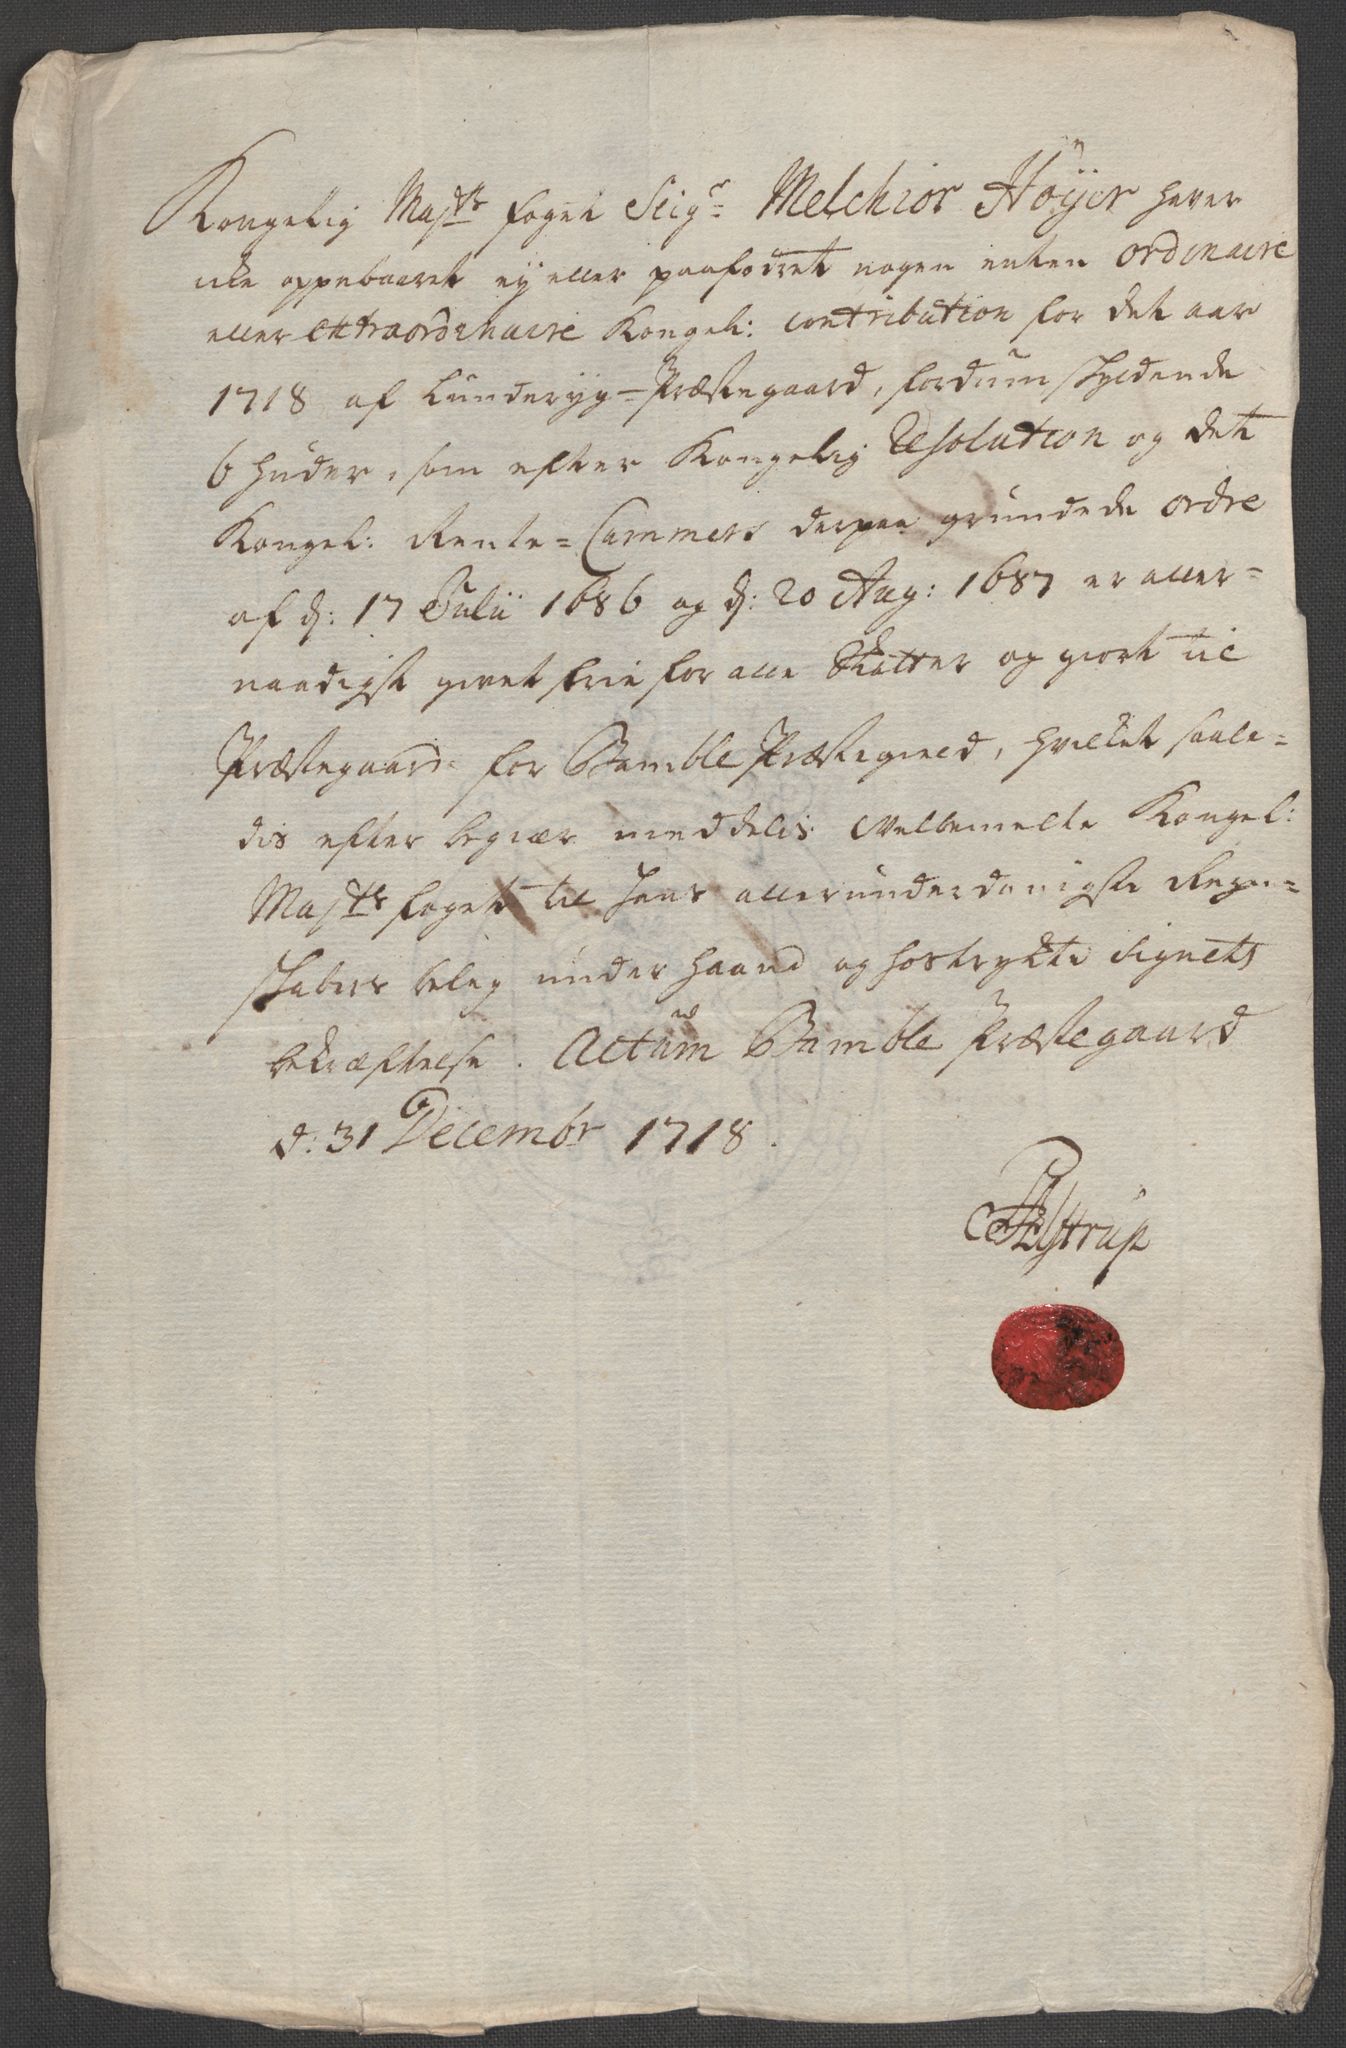 Kongelig Majtts foget Seigr Melchior Höyer hever
icke oppebaaret ey eller paafodret nogen enten ordinaire
eller extraordinaire Kongel: contribution for det aar
1718 af Lunderyg=Præstegaard, fordum skyldende
6 huder, som efter Kongelig Resolution og det
Kongel: Rente=Cammers derpaa grundede ordre
af d: 17 Julii 1686 og d: 20 Aug: 1687 er aller=
naadigst givet frie for alle Skatter og giort til
Præstegaard for Bamble Præstegield, hvilket saale=
dis efter begiær meddelis Velbemelte Kongel:
Majtts foget til hans allerunderdanigste Regen=
skabers beleg under haand og hostrykte Signets
bekræftelse. Actum Bamble Præstegaard
d: 31 Decembr 1718.
Elstrup